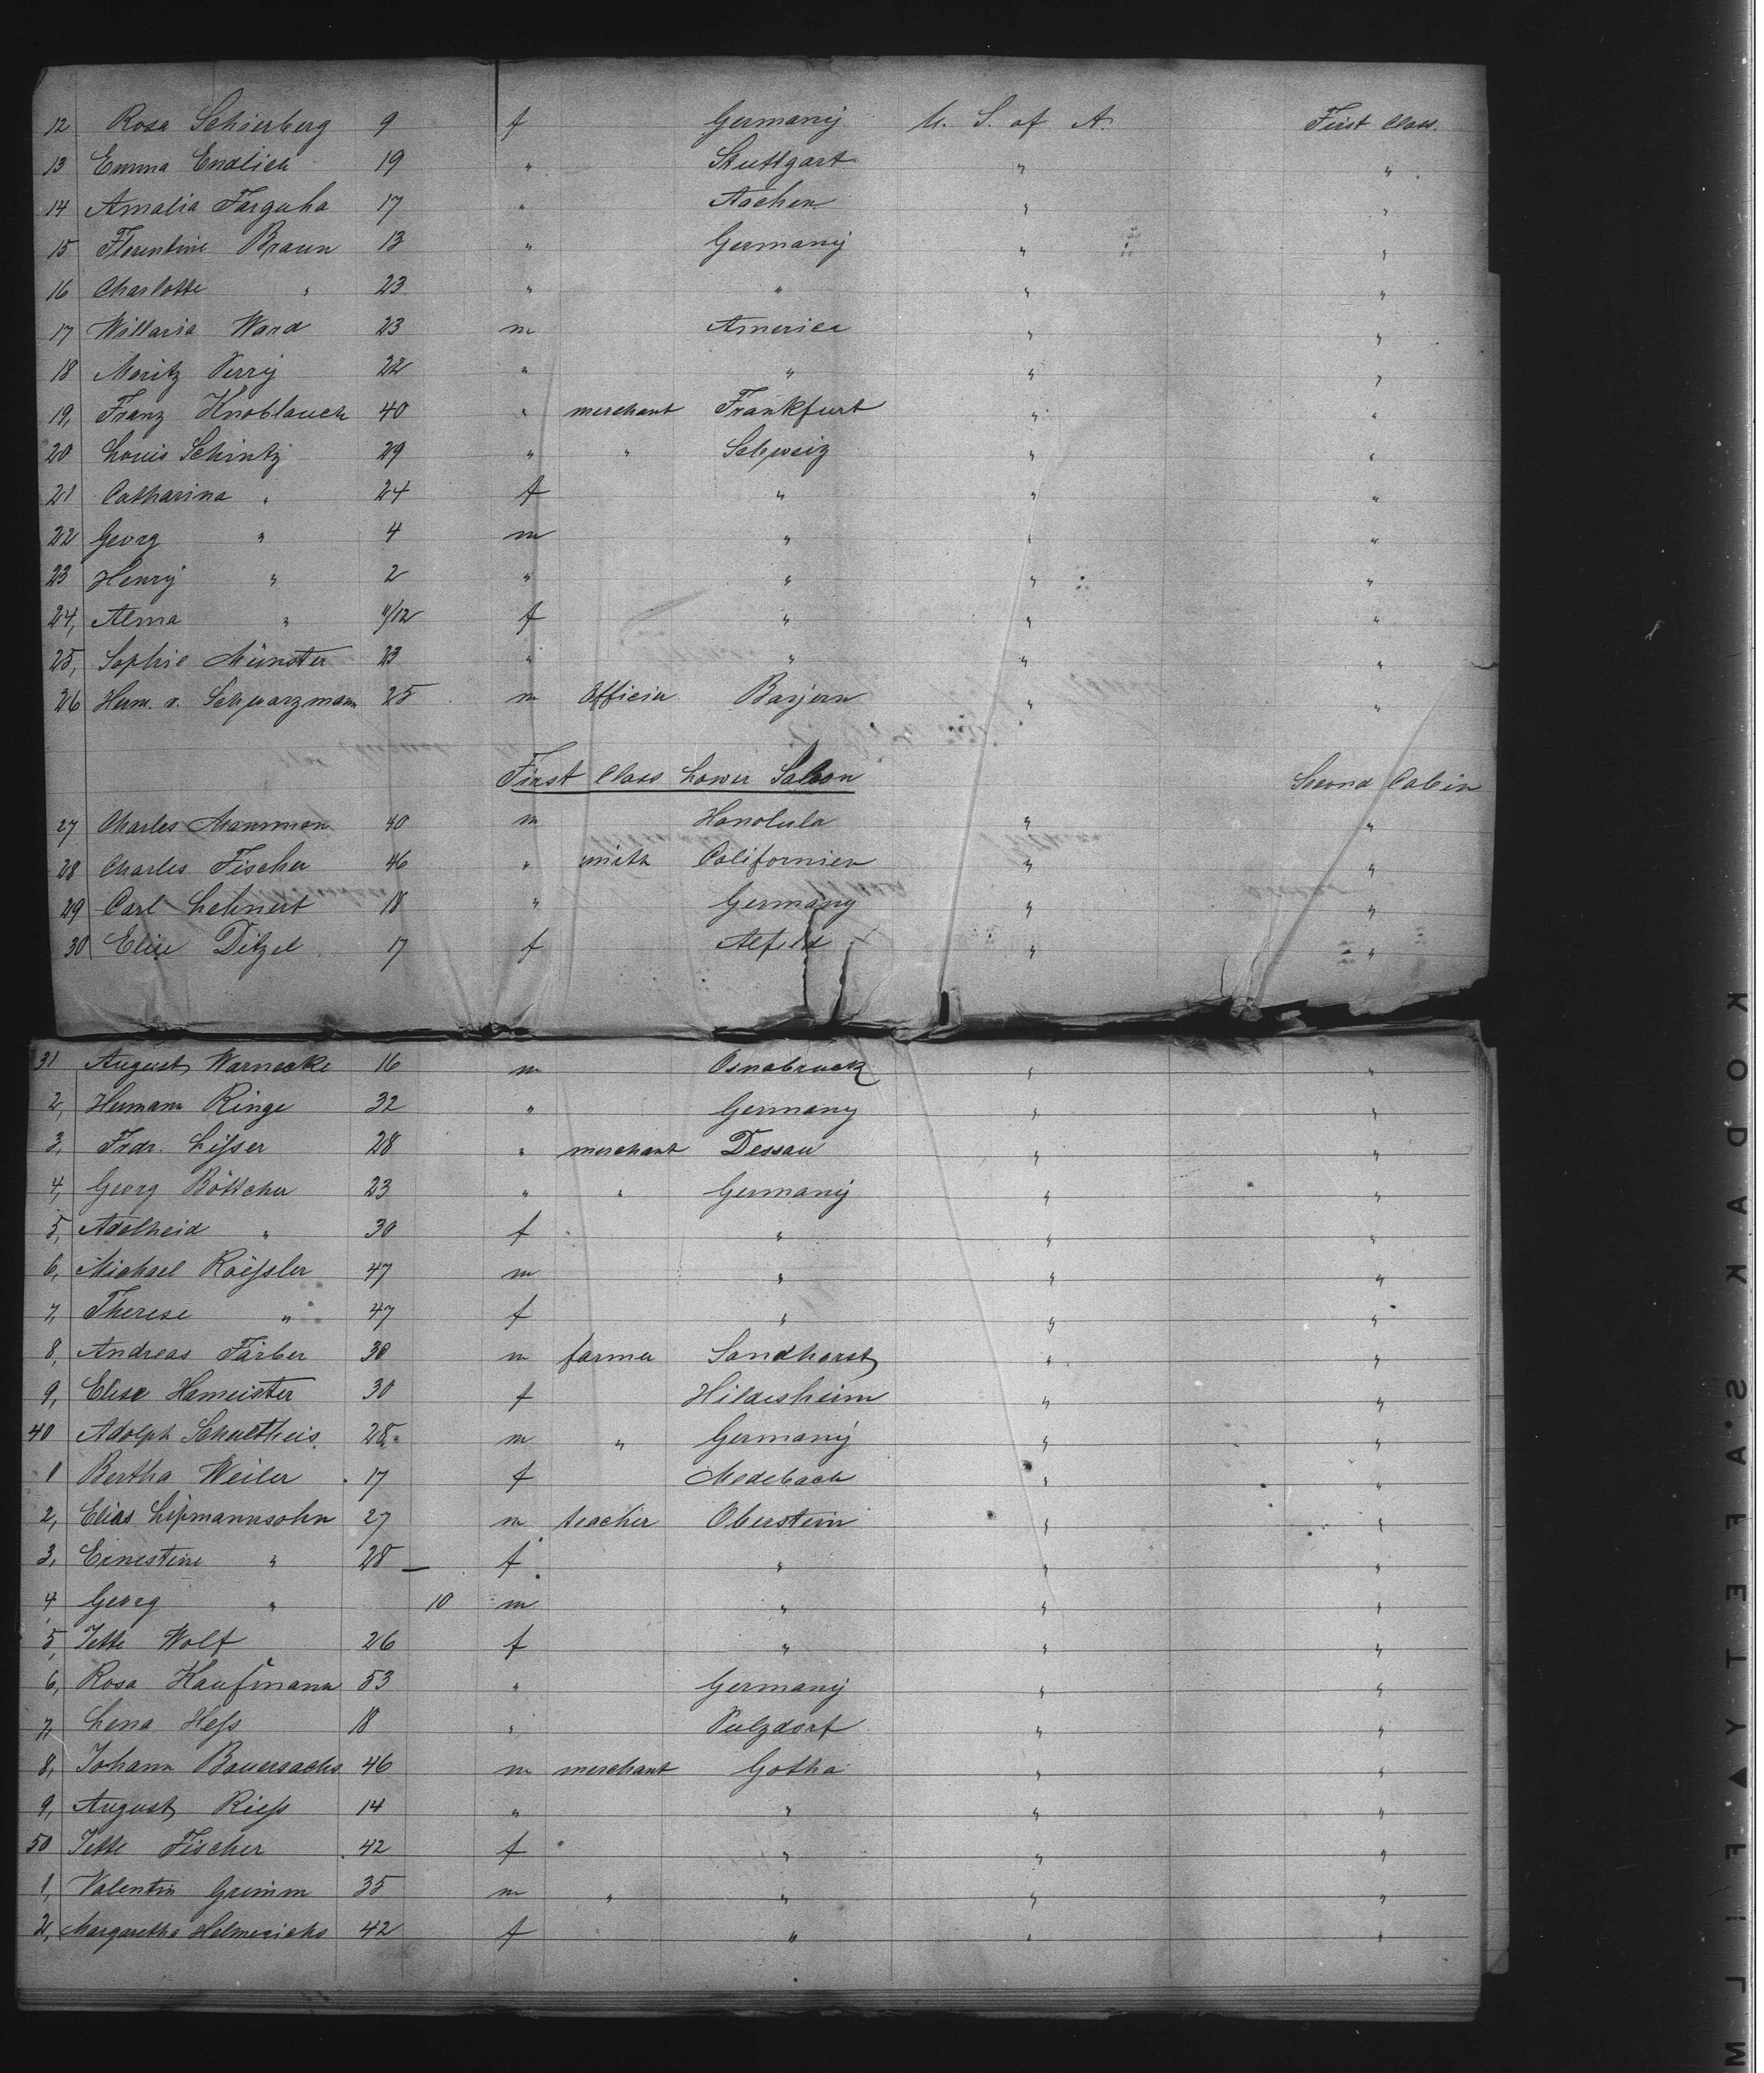 12 Rosa Schierberg 9 f Germany U. S. of A. First Class.
13 Emma Endlich 19 " Stuttgart " "
14 Amalia Farguha 17 " Aachen " "
15 Florentine Braun 13 " Germany " "
16 Charlotte " 23 " " " "
17 Ward 23 m America " "
18 Moritz Perry 22 " " " "
19, Franz Knoblauch 40 " merchant Frankfurt " "
20 Louis Schintz 29 " " Schweiz " "
21 Catharina " 24 f " " "
22 Georg " 4 m " " "
23 Henry " 2 " " " "
24, Alma " 11/12 f " " "
25, Sophie Münster 23 " " " "
26 Herm. v. Schwarzmann 25 m Officier Bayern " "
First Class Lower Saloon Second Cabin
27 Charles 40 m Honolulu " "
28 Charles Fischer 46 " Californien " "
29 Carl Lehnert 18 " Germany " "
30 Elise Ditzel 17 f Alfeld " "
31 August Warnecke 16 m Osnabruck " "
2, Hermann Ringe 32 " Germany " "
3, Frdr. Lisser 28 " merchant Dessau " "
4, Georg Böttcher 23 " " Germany " "
5, Adelheid " 30 f " " "
6, Michael Roessler 47 m " " "
7, Therese " 47 f " " "
8, Andreas Färber 30 m farmer Sandhorst " "
9, Elise Hameister 30 f Hildesheim " "
40 Adolph Schultheis 28 m " Germany " "
1 Bertha Weiler 17 f Medebach " "
2, Elias Lipmannsohn 27 m teacher Oberstein " "
3, Ernestine " 28 f " " "
4, Georg " 10 m " " "
5, Jette Wolf 26 f " " "
6, Rosa Kaufmann 53 " Germany " "
7, Lena Hess 18 " Pulzdorf " "
8, Johann Bauersachs 46 m merchant Gotha " "
9, August Riess 14 " " " "
50 Jette Fischer 42 f " " "
1, Valentin Grimm 35 m " " " "
2, Margaretha Helmerichs 42 f " " "
KODAK SAFETY FILM